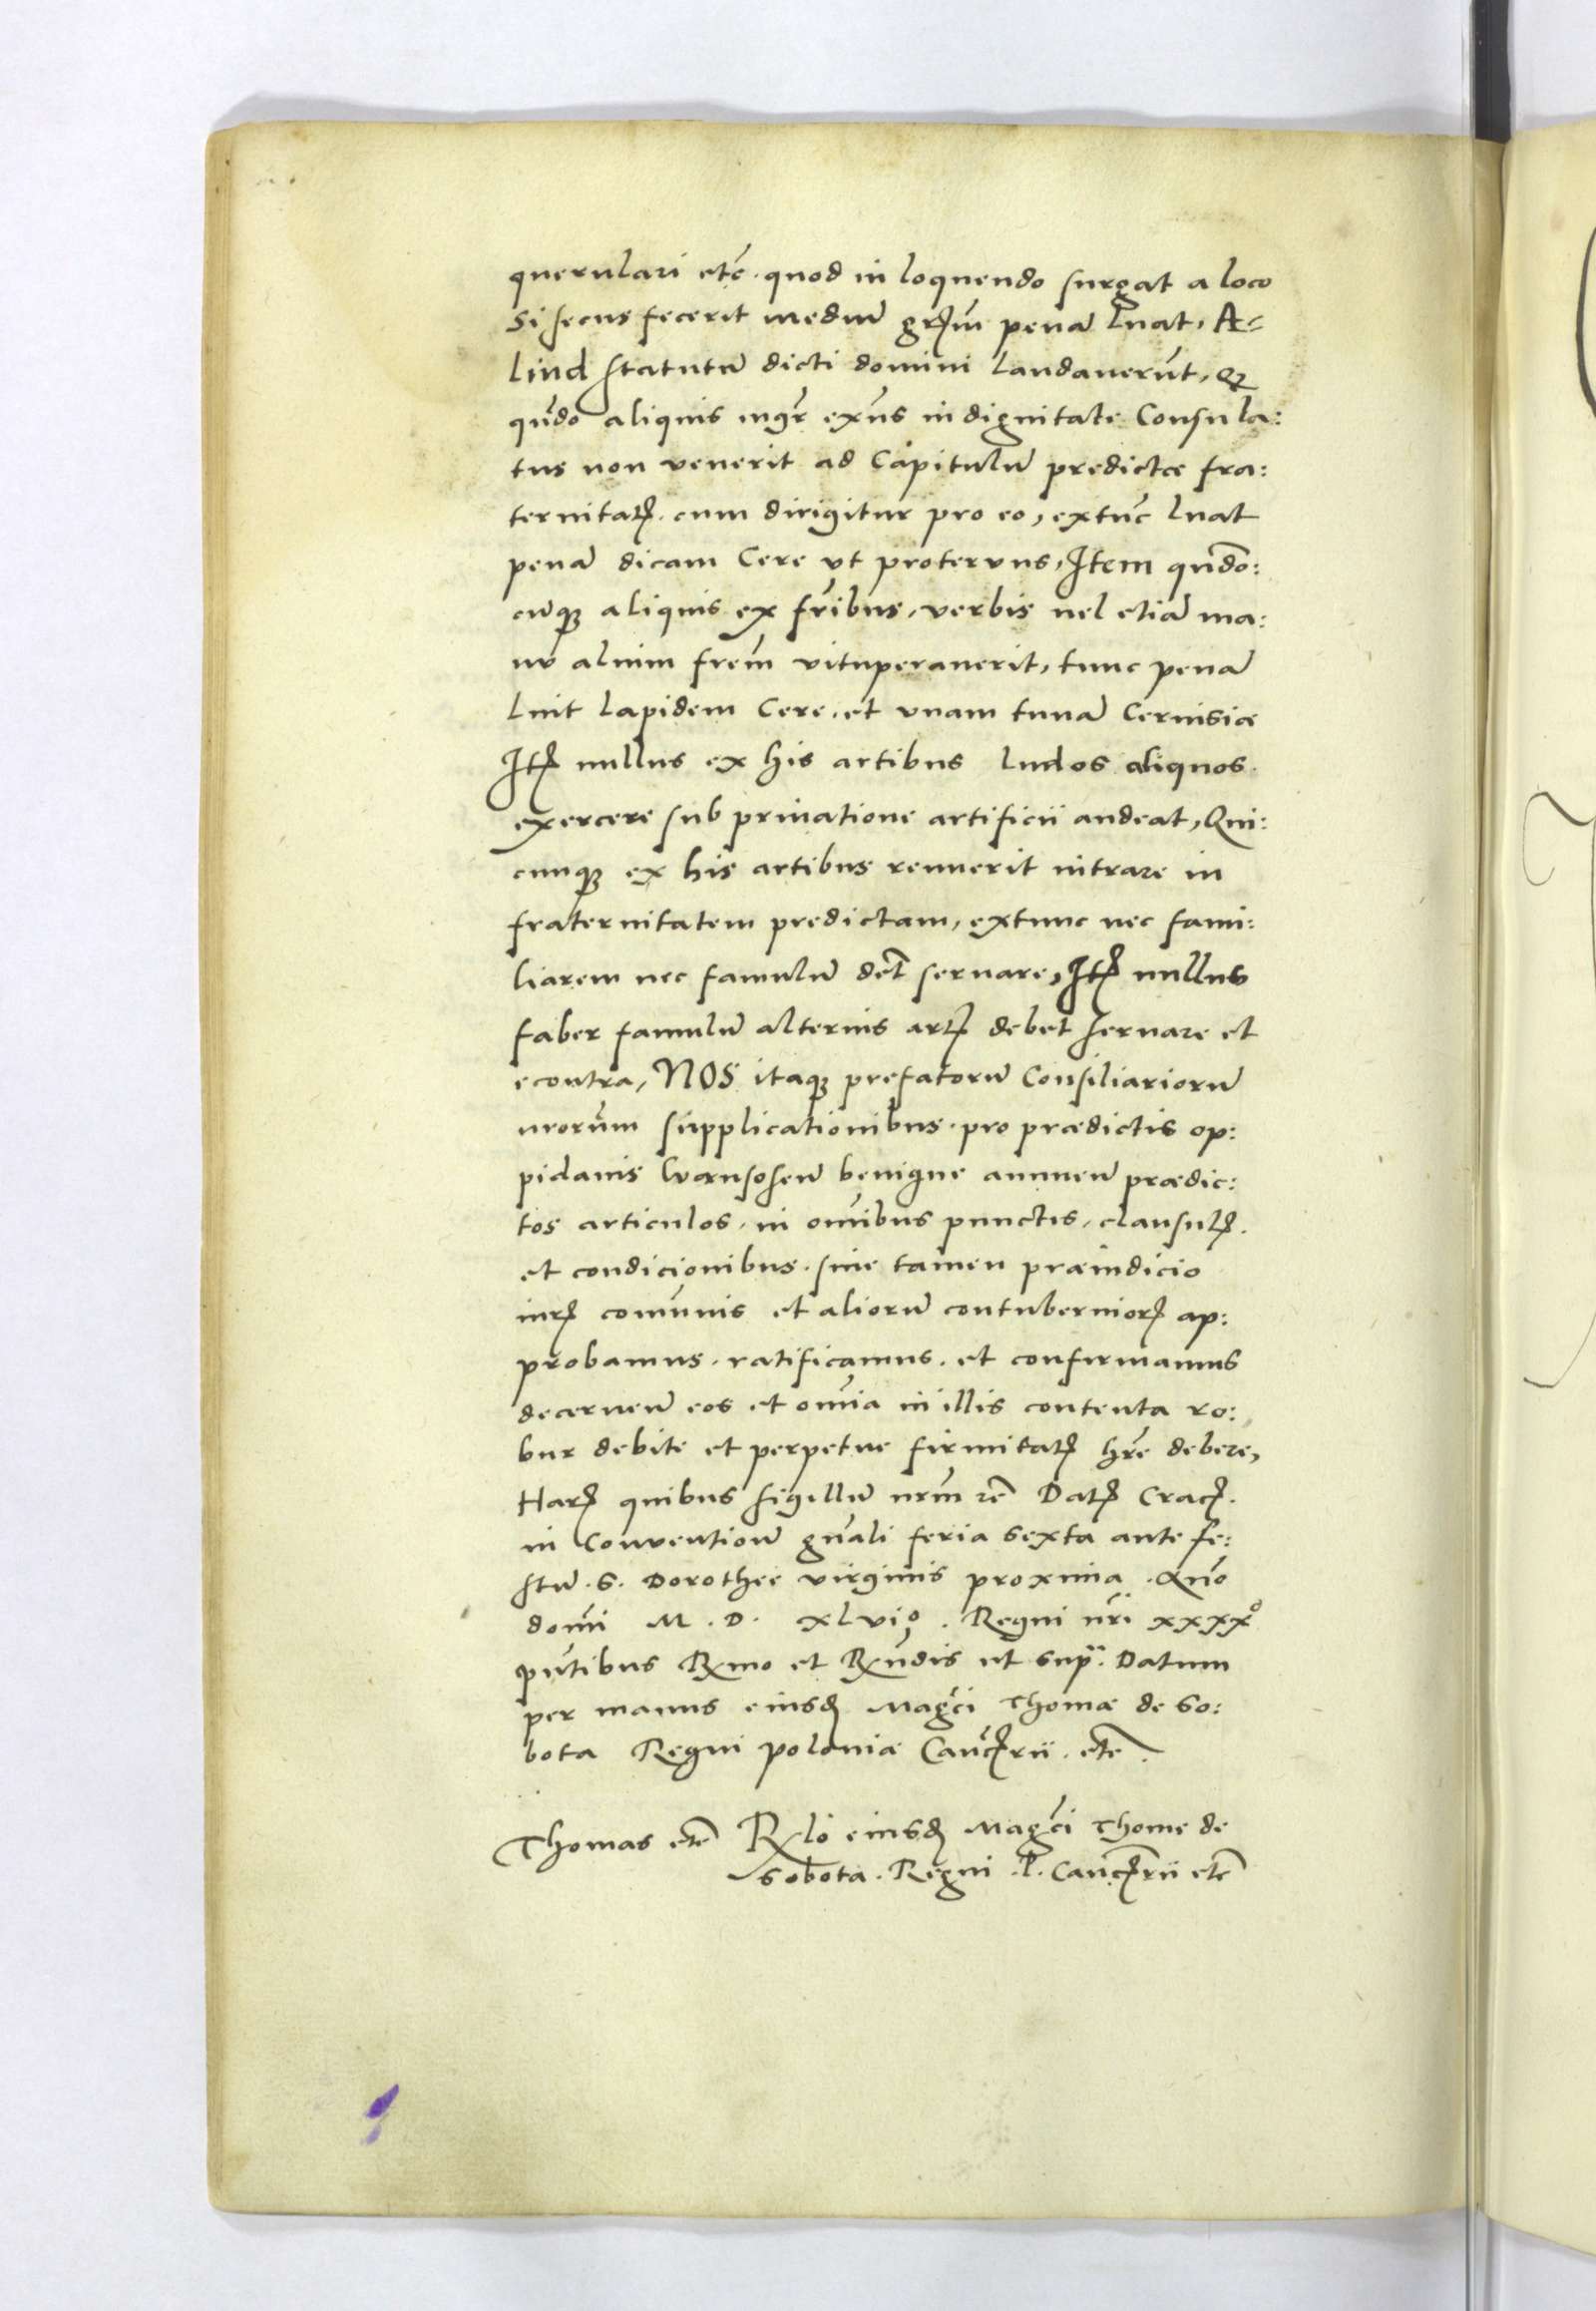 querulari etc̄. quod in loquendo surgat a loco
Si secus fecerit mediū grſm penā luat, A=
liud statutū dicti domini laudauerūt, qꝫ
qūdo aliquis mgr̄ exn̄s in dignitate Consula:
tus non venerit ad Capitulū predictæ fra:
ternitatꝭ. cum dirigitur pro eo, extūc luat
penā dicam Cere vt proteruus, Item qūdo:
cūqꝫ aliquis ex frībus, verbis uel etiā ma:
nu alium frēm vituperauerit, tunc penā
luit lapidem Cere, et vnam tunā Ceruisiæ
Itꝭ nullus ex his artibus ludos aliquos
exercere sub priuatione artificii audeat, Qui:
cunqꝫ ex his artibus renuerit intrare in
fraternitatem predictam, extunc nec fami:
liarem nec famulū det̄ seruare, Itꝭ nullus
faber famulū alterius artꝭ debet seruare et
econtra, NOS itaqꝫ prefatorū Consiliariorū
nrorūm supplicationibus. pro prædictis op:
pidanis Wansoseū benigne annueū prædic:
tos articulos. in omībus punctis, clausulꝭ.
et condicionibus. sine tamen præiudicio
iurꝭ comūnis et aliorū contuberniorꝭ ap:
probamus. ratificamus. et confirmamus
decerneū eos et omīa in illis contenta ro:
bur debite et perpetue firmitatꝭ hr̄e debere,
Harꝭ quibus sigillū nrm̄ rē Datꝭ Cracꝭ.
in Conuentioū gn̄ali feria sexta ante fe:
stū. S. Dorothee virginis proxima. Ano
domī M. D. xlvi°. Regni nrī xxxx°
pn̄tibus Rxmo et Rxn̄dis ut sup̄. Datum
per manus eiusdꝭ Magc̄i Thomæ de So:
bota Regni poloniæ Canc̄ꝭrii. etc̄.
Thomas etc̄ Rx lō eiusdꝭ Magc̄i Thome de
Sobota. Regni P. Canc̄ꝭrii etc̄